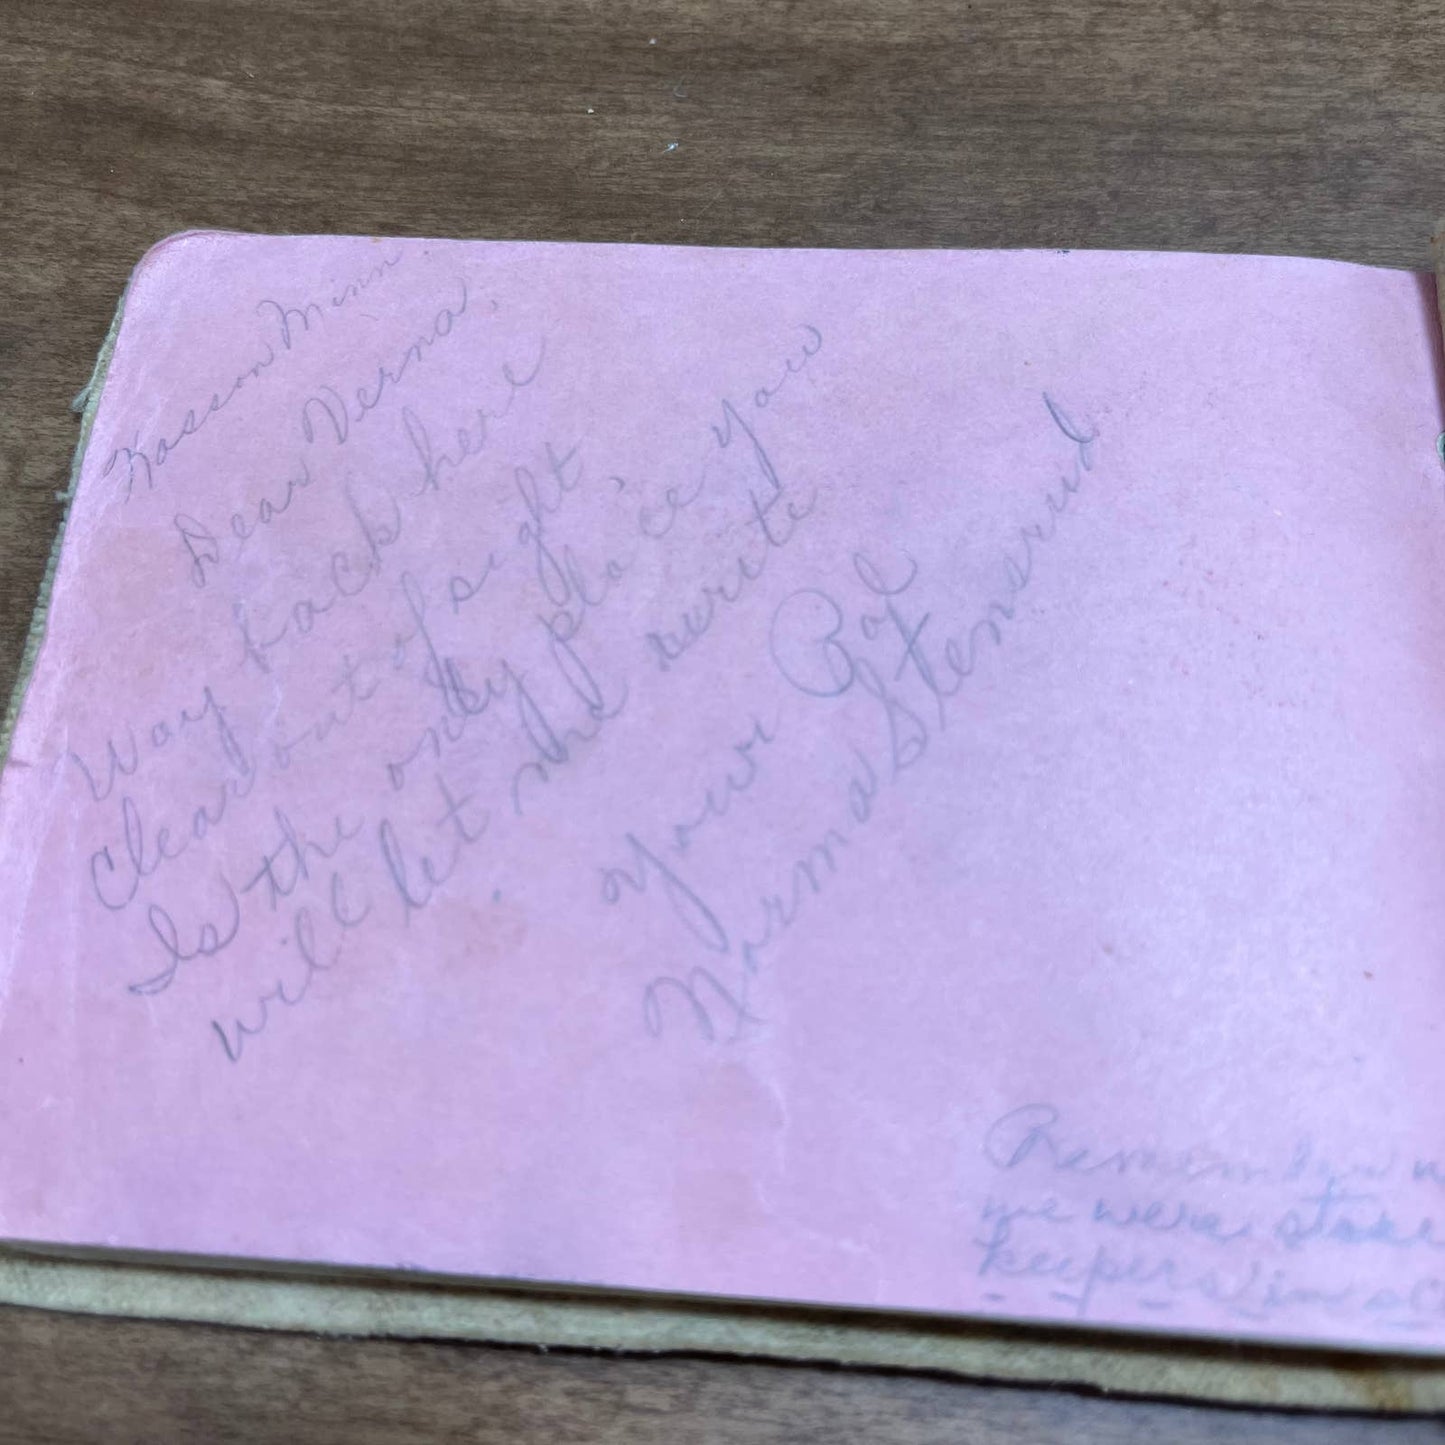 Kasson Minn
Dear Verna,
Way back here
Clear out of sight,
Is the only place you
will let me write.
Your Pal
Norma Stensrud
Remember
we were store
keepers in